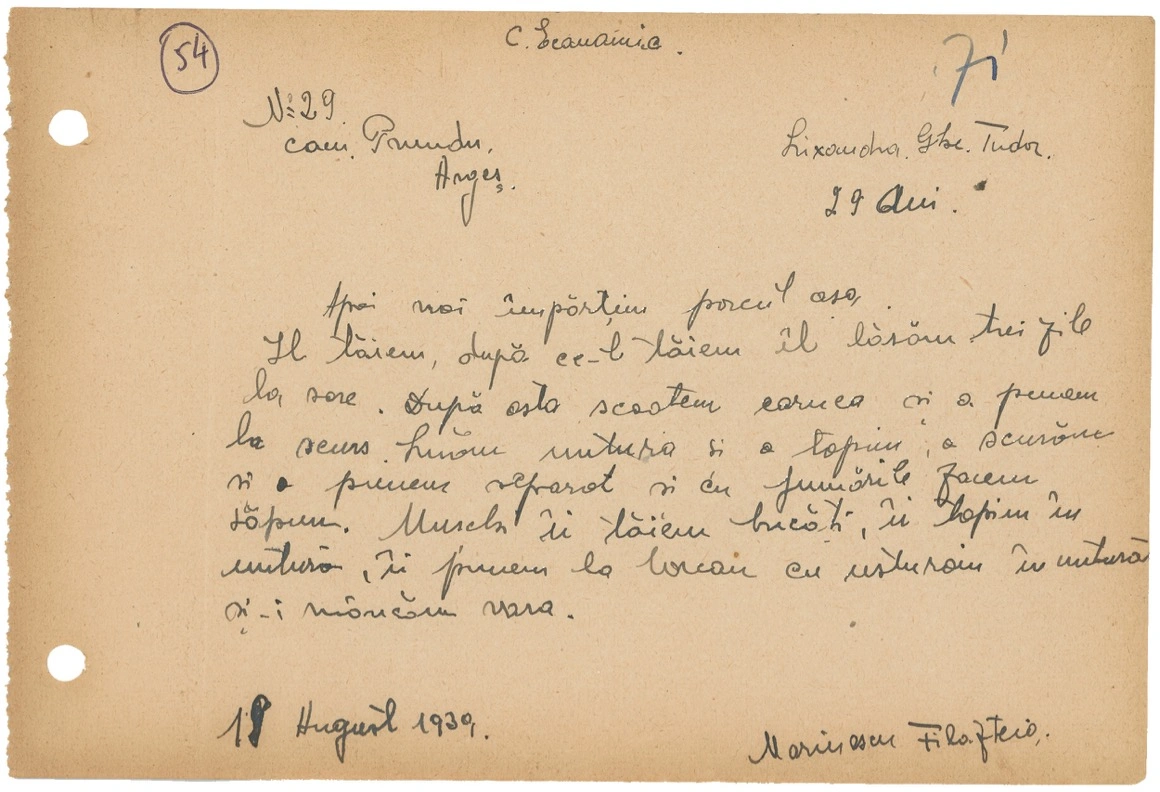 54
C. Economica.
71
No 29.
com. Prundu,
Argeș.
Lixandra. Ghe. Tudor.
29 Ani.
Apoi noi împărțim porcul așa.
Il tăiem, după ce-l tăiem îl lăsăm trei zile
la sare. După asta scoatem carnea si a punem
la scurs. Luăm untura si a topim, a scurăm
si a punem separat si cu jumările facem
săpun. Muschi îi tăiem bucăti, îi topim în
untură, îi punem la borcan cu usturoiu în untură
și-i mâncăm vara.
18 August 1939.
Marinescu Filofteia.